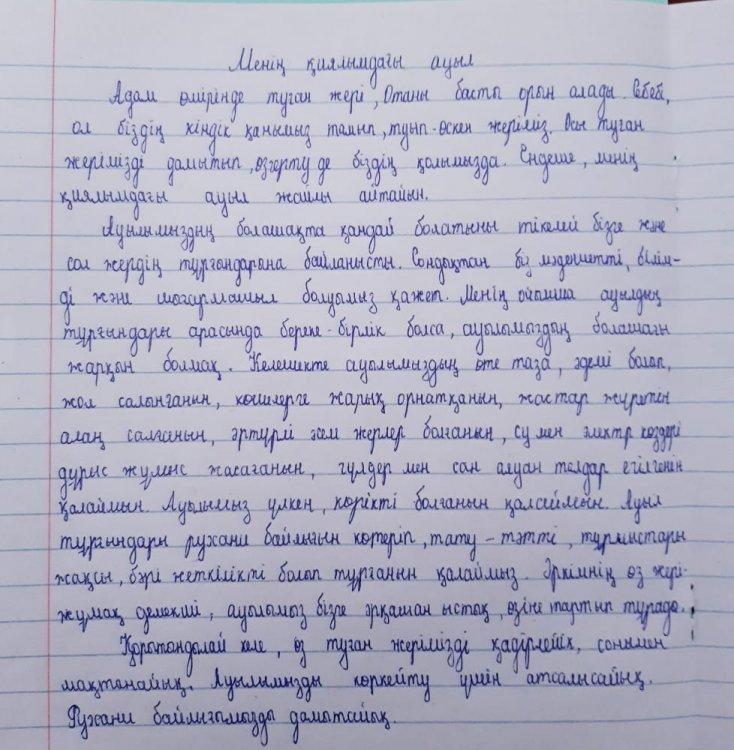 Менің қиялымдағы ауыл
Адам өмірінде туған жері, Отаны басты орын алады. Себебі,
ол біздің кіндік қанымыз тамып, туып-өскен жеріміз. Осы туған
жерімізді дамытып, өзгерту де біздің қолымызда. Ендеше, менің
қиялымдағы ауыл жайлы айтайын.
Ауылымыздың болашақта қандай болатыны тікелей бізге және
сол жердің тұрғындарына байланысты. Сондықтан біз мәдениетті, білім-
ді және шығармашыл болуымыз қажет. Менің ойымша ауылдың
тұрғындары арасында береке-бірлік болса, ауылымыздың болашағы
жарқын болмақ. Келешекте ауылымыздың өте таза, әдемі болып,
жол салынғанын, көшелерге жарық орнатқанын, жастар жүретін
алаң салғанын, әртүрлі әсем жерлер болғанын, су мен электр көздері
дұрыс жұмыс жасағанын, гүлдер мен сан алуан талдар егілгенін
қалаймын. Ауылымыз үлкен, көрікті болғанын қалаймын. Ауыл
тұрғындары рухани байлығын көтеріп, тату-тәтті, тұрмыстары
жақсы, бәрі жеткілікті болып тұрғанын қалаймыз. Әркімнің өз жері-
жұмақ демекші, ауылымыз бізге әрқашан ыстық, өзіне тартып тұрады.
Қорытындылай келе, өз туған жерімізді қадірлейік, сонымен
мақтанайық. Ауылымызды көркейту үшін атсалысайық.
Рухани байлығымызды дамытайық.